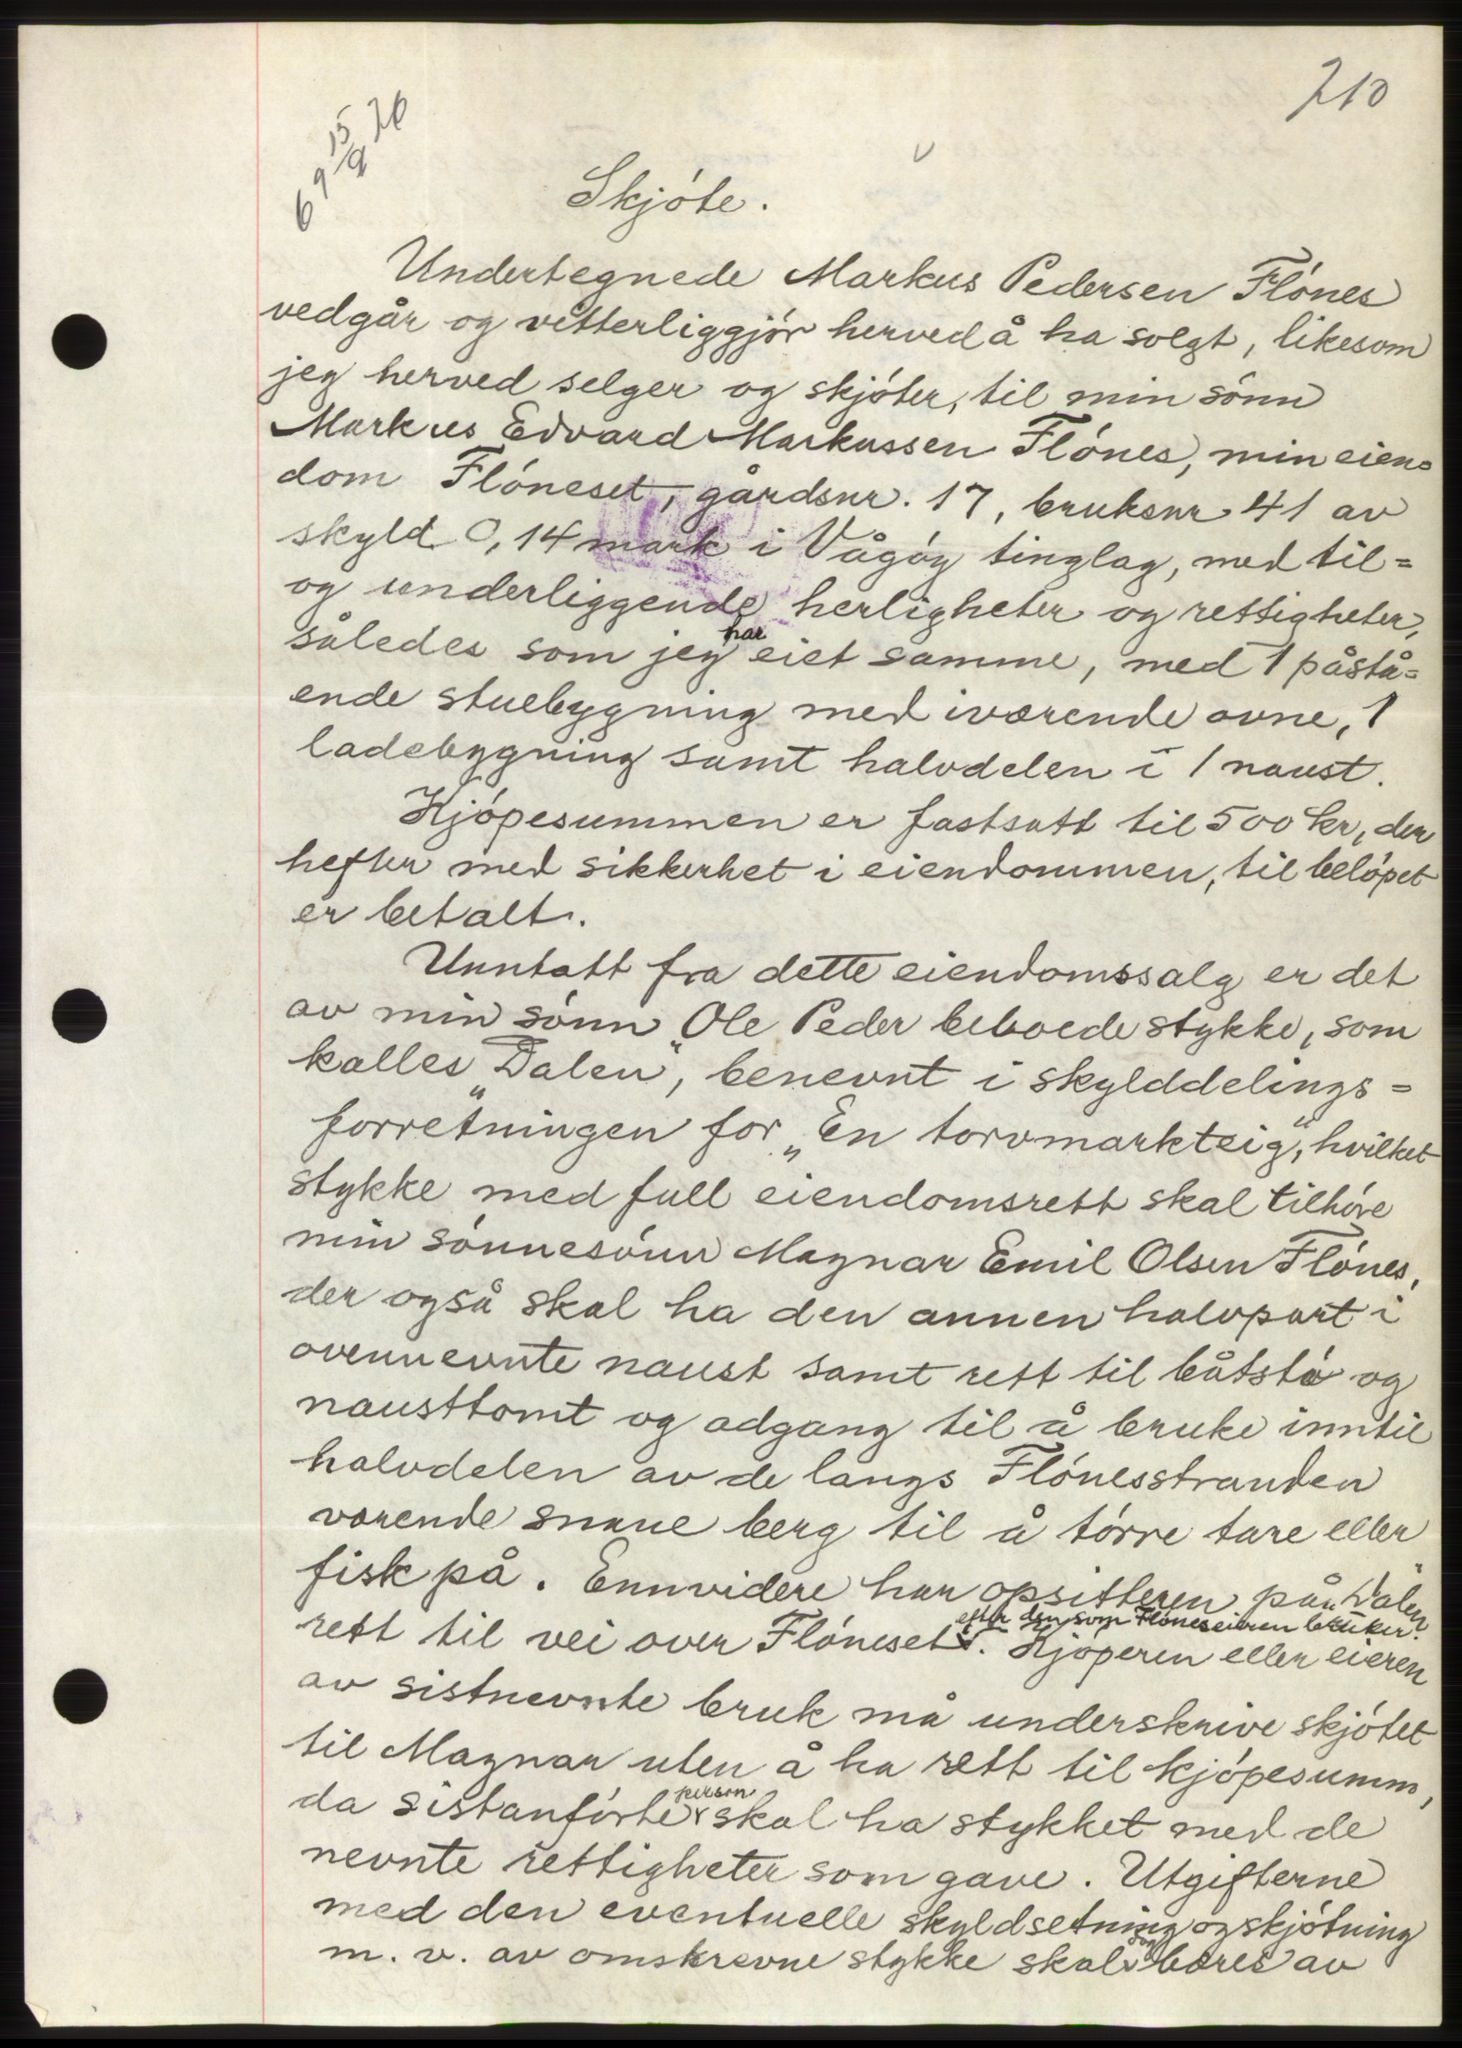 210
69 15/9 26
Skjóte.
Undertegnede Markus Pedersen Flónes
vedgår og vitterliggjór herved å ha solgt, likesom
jeg herved selger og skjóter, til min sónn
Markus Edvard Markussen Flónes, min eien=
dom Flóneset, gårdsnr. 17, bruksnr 41 av
skyld 0,14 mark i Vågóy tinglag, med til=
og underliggende herligheter og rettigheter,
således som jeg har eiet samme, med 1 påstå=
ende stuebygning med iværende ovne, 1
ladebygning samt halvdelen i 1 naust.
Kjópesummen er fastsatt til 500 kr, der
hefter med sikkerhet i eiendommen, til belópet
er betalt.
Unntatt fra dette eiendomssalg er det
av min sónn Ole Peder beboede stykke, som
kalles „Dalen", benevnt i skylddelings=
forretningen for „En torvmarkteig", hvilket
stykke med full eiendomsrett skal tilhóre
min sónnesónn Magnar Emil Olsen Flónes,
der også skal ha den annen halvpart i
ovennevnte naust samt rett til båtstó og
nausttomt og adgang til å bruke inntil
halvdelen av de langs Flónesstranden
værende snaue berg til å tórre tare eller
fisk på. Ennvidere har opsitteren på „Dalen"
rett til vei over Flóneset efter den som Flóneseieren bruker. Kjóperen eller eieren
av sistnevnte bruk må underskrive skjótet
til Magnar uten å ha rett til kjópesumm,
da sistanfórte person skal ha stykket med de
nevnte rettigheter som gave. Utgifterne
med den eventuelle skyldsetning og skjótning
m. v. av omskrevne stykke skal bæres av